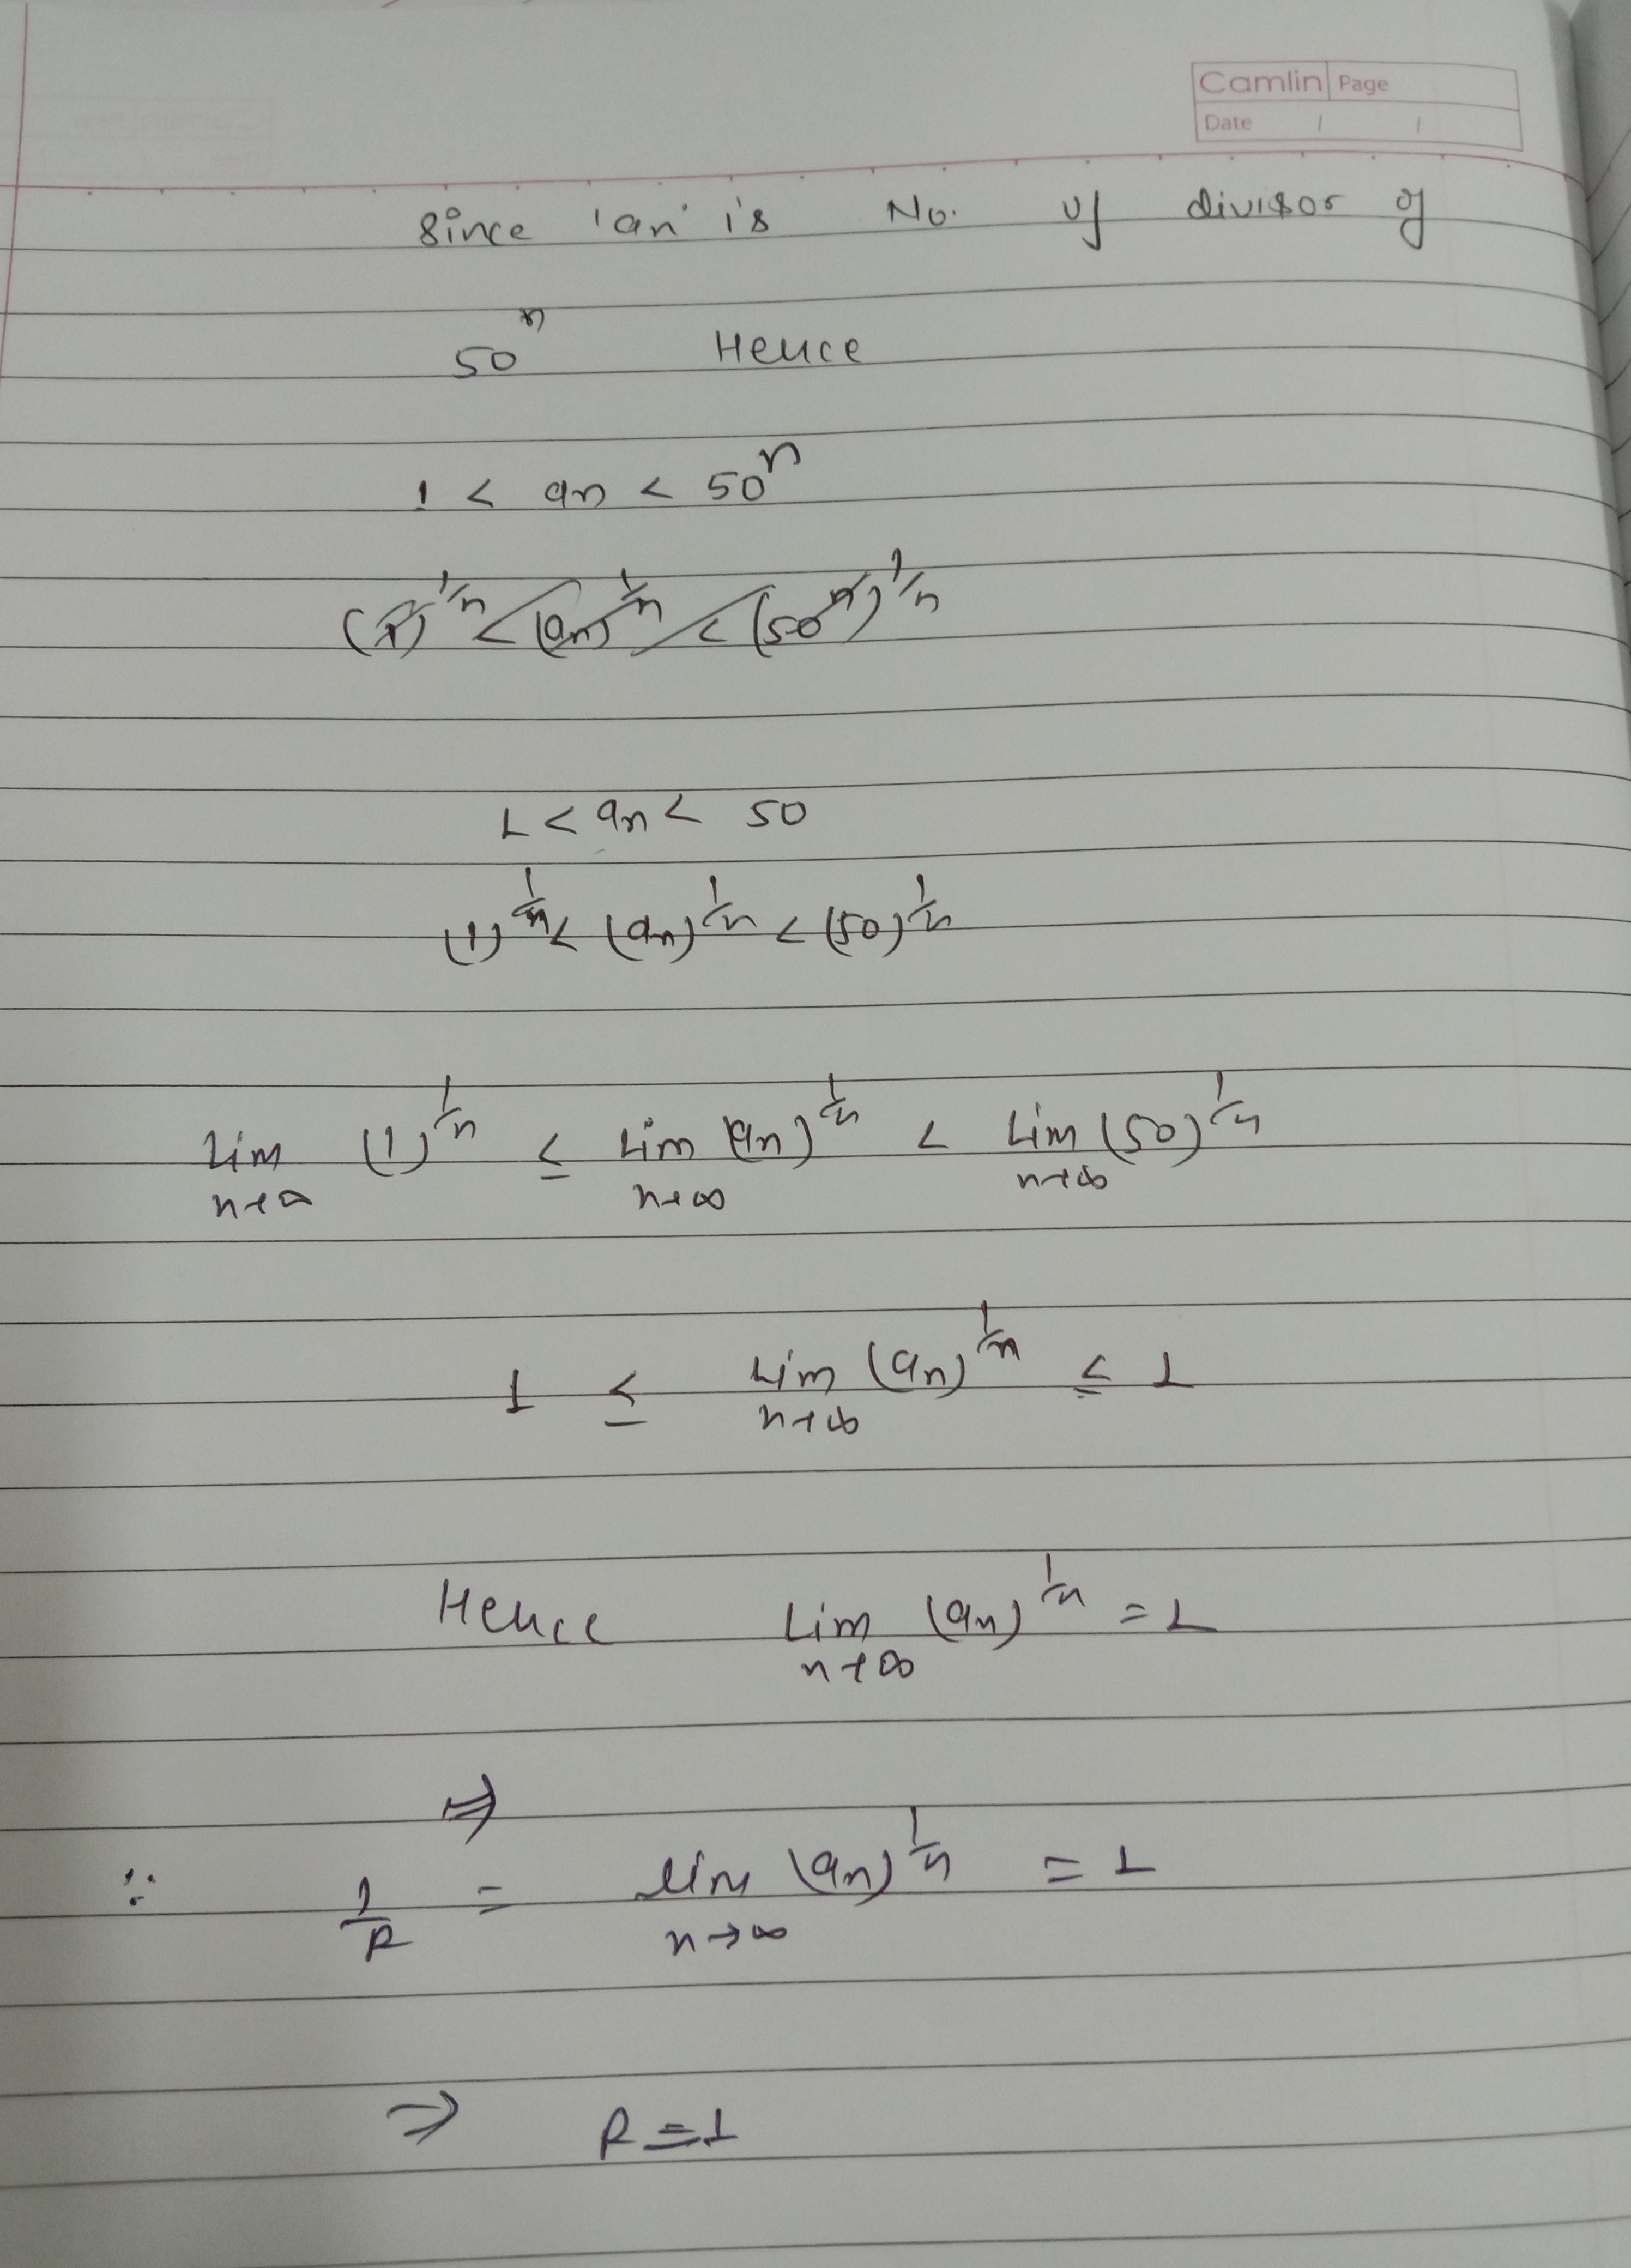 Camlin Page
Date / /
Since 'an' is No. of divisor of
50^n Hence
1 < an < 50^n
(1)^1/n < (an)^1/n < (50^n)^1/n
1 < an < 50
(1)^1/n < (an)^1/n < (50)^1/n
Lim n→∞ (1)^1/n ≤ Lim n→∞ (an)^1/n < Lim n→∞ (50)^1/n
1 ≤ Lim n→∞ (an)^1/n ≤ 1
Hence Lim n→∞ (an)^1/n = 1
⇒
∵ 1/R = lim n→∞ (an)^1/n = 1
⇒ R = 1